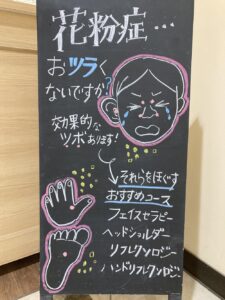 花粉症…
おツラく
ないですか?
効果的な
ツボあります!
それらをほぐす
おすすめコース
フェイスセラピー
ヘッドショルダー
リフレクソロジー
ハンドリフレクソロジー